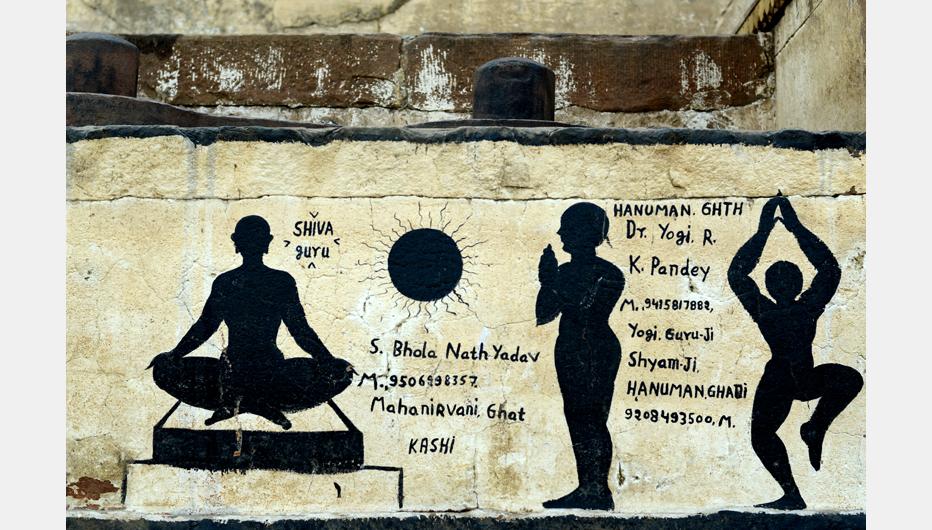 SHIVA
guru
S. Bhola Nath Yadav
M., 9506998357
Mahanirvani, Ghat
KASHI
HANUMAN. GHTH
Dr. Yogi. R.
K. Pandey
M., 9415817882,
Yogi. Guru-Ji
Shyam-Ji.
HANUMAN, GHATI
9208493500, M.